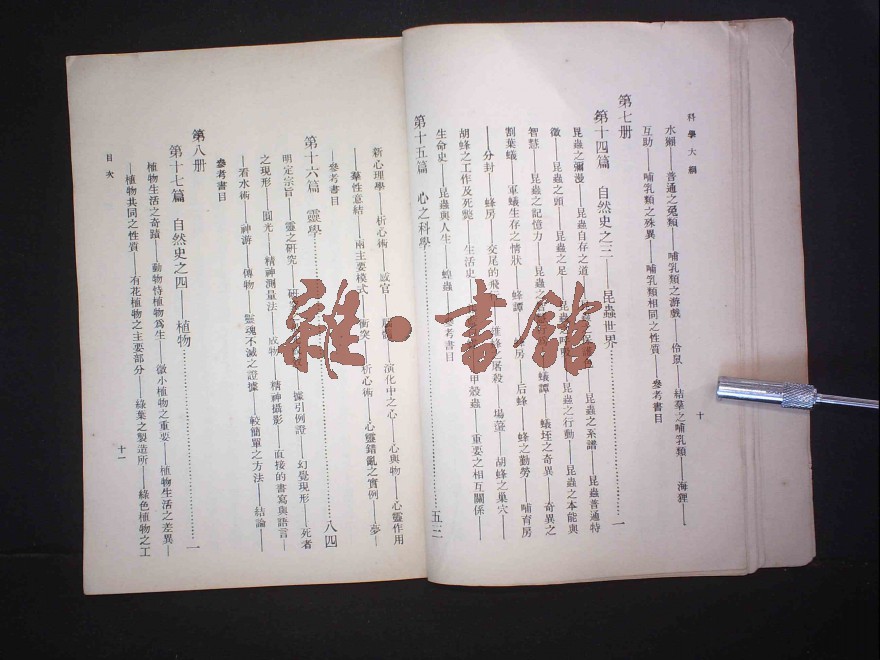 科學大綱
十
水獺——普通之兔類——哺乳類之游戲——伶鼠——結羣之哺乳類——海狸——
互助——哺乳類之殊異——哺乳類相同之性質——參考書目
第七册
第十四篇 自然史之三——昆蟲世界 一
昆蟲之彌漫——昆蟲自存之道——昆蟲之系譜——昆蟲普通特
徵——昆蟲之頭——昆蟲之足——昆蟲之行動——昆蟲之本能與
智慧——昆蟲之記憶力——蟻譚——蟻垤之奇異——奇異之
割葉蟻——軍蟻生存之情狀——蜂譚——后蜂——蜂之勤勞——哺育房
——分封——蜂房——交尾的飛——雄蜂之屠殺——場蓋——胡蜂之巢穴——
胡蜂之工作及死斃——生活史——甲殼蟲——重要之相互關係——
生命史——昆蟲與人生——蝗蟲——參考書目
第十五篇 心之科學 五三
新心理學——析心術——感官——演化中之心——心與物——心靈作用
——羣性意結——兩主要模式——衝突——析心術——心靈錯亂之實例——夢——
——參考書目
第十六篇 靈學 八四
明定宗旨——靈之研究——據引例證——幻覺現形——死者
之現形——圓光——精神測量法——成物——精神攝影——直接的書寫與語言——
——看水術——神游——傳物——靈魂不滅之證據——較簡單之方法——結論——
參考書目
第八册
第十七篇 自然史之四——植物 一
植物生活之奇蹟——動物恃植物爲生——微小植物之重要——植物生活之差異——
——植物共同之性質——有花植物之主要部分——綠葉之製造所——綠色植物之工
目次
十一
雜·書館